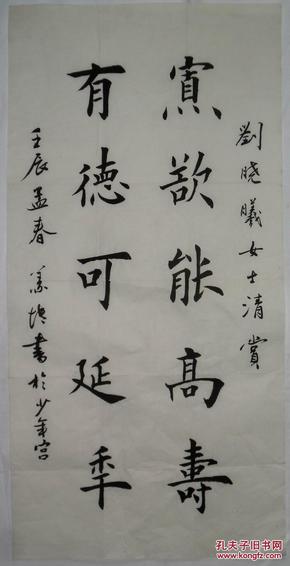 劉晓曦女士清賞
寡欲能高壽
有德可延年
壬辰孟春 書於少年宫
孔夫子旧书网